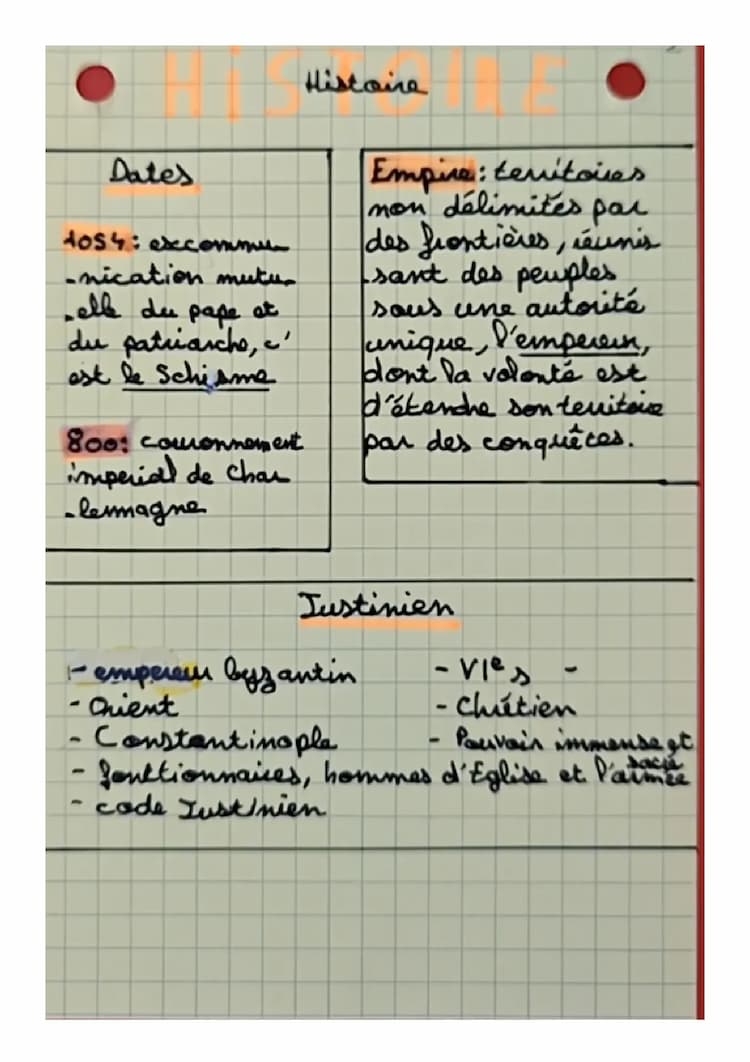 HiSTOIRE
Histoire
Dates
1054 : excommu
-nication mutu-
-elle du pape et
du patriarche, c'
est le Schisme
800: couronnement
imperial de Char
-lemagne
Empire : territoires
non délimités par
des frontières, réunis
-sant des peuples
sous une autorité
unique, l'empereur,
dont la volonté est
d'étendre son territoire
par des conquêtes.
Justinien
- empereur byzantin
- Orient
- Constantinople
- fonctionnaires, hommes d'Eglise et l'armée
- code Justinien
- VIe s -
- Chrétien
- Pouvoir immense et
sacré